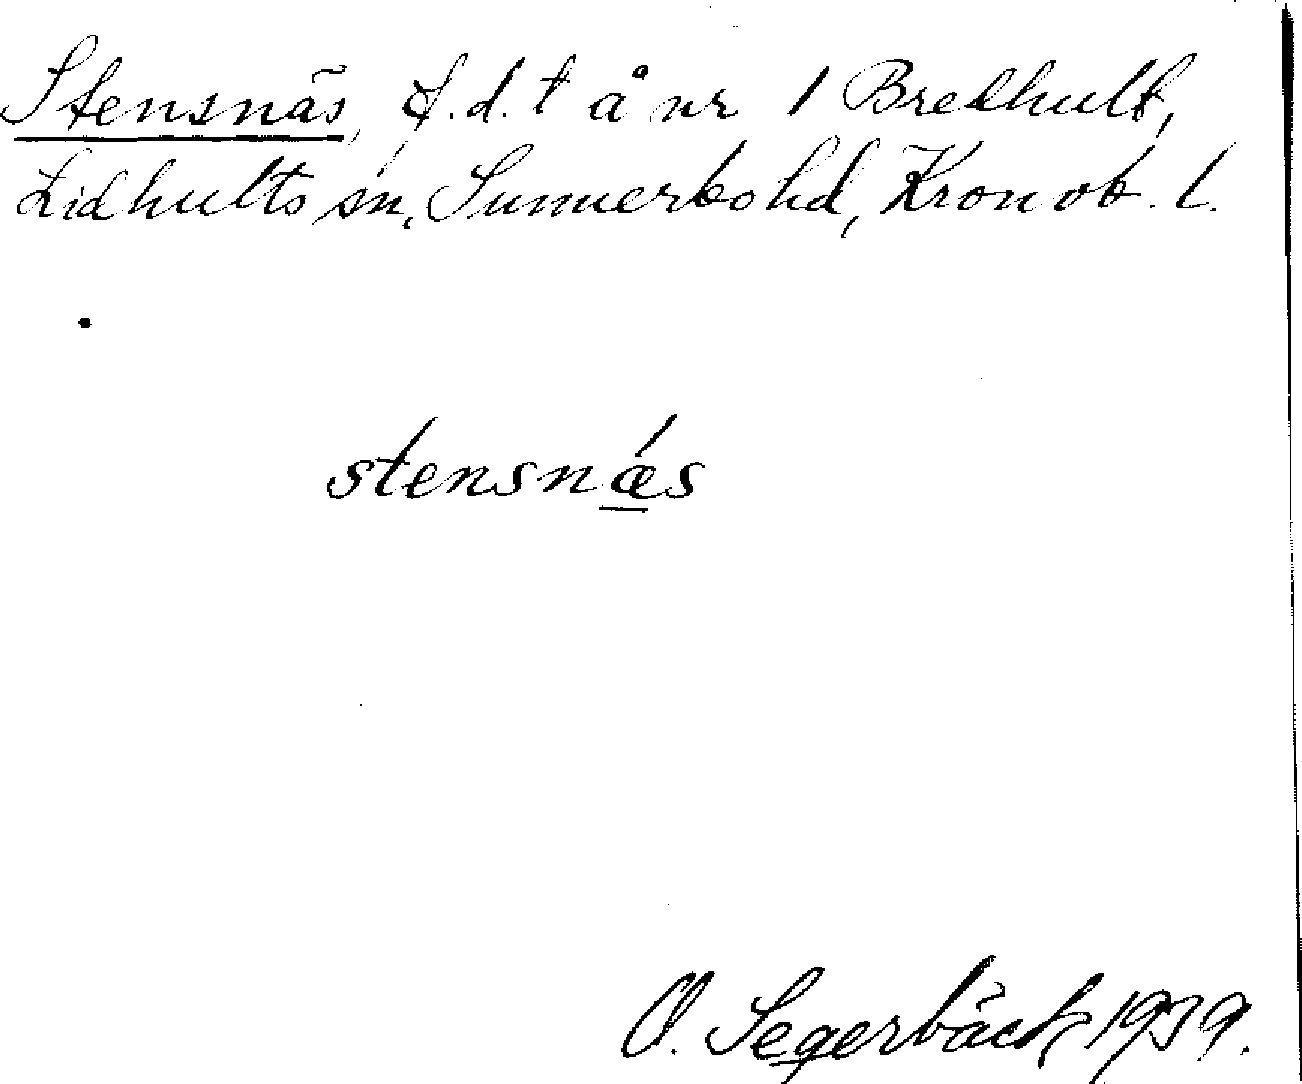 Stensnäs, f.d. t å nr 1 Bredhult,
Lidhults sn, Sunnerbo hd, Kronob. l.
stensnǽs
O. Segerbäck 1939.